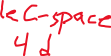 le C-space
4 d